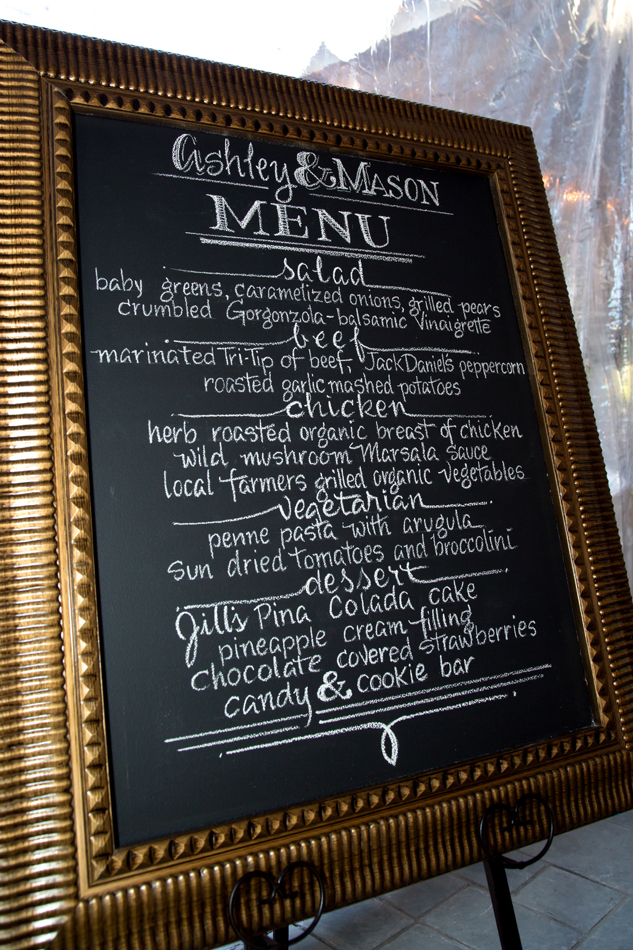 Ashley & MASON
MENU
salad
baby greens, caramelized onions, grilled pears
crumbled Gorgonzola-balsamic Vinaigrette
beef
marinated Tri-Tip of beef, Jack Daniel's peppercorn
roasted garlic mashed potatoes
chicken
herb roasted organic breast of chicken
wild mushroom Marsala sauce
local farmers grilled organic vegetables
vegetarian
penne pasta with arugula
sun dried tomatoes and broccolini
dessert
Jill's Pina Colada cake
pineapple cream filling
chocolate covered strawberries
candy & cookie bar